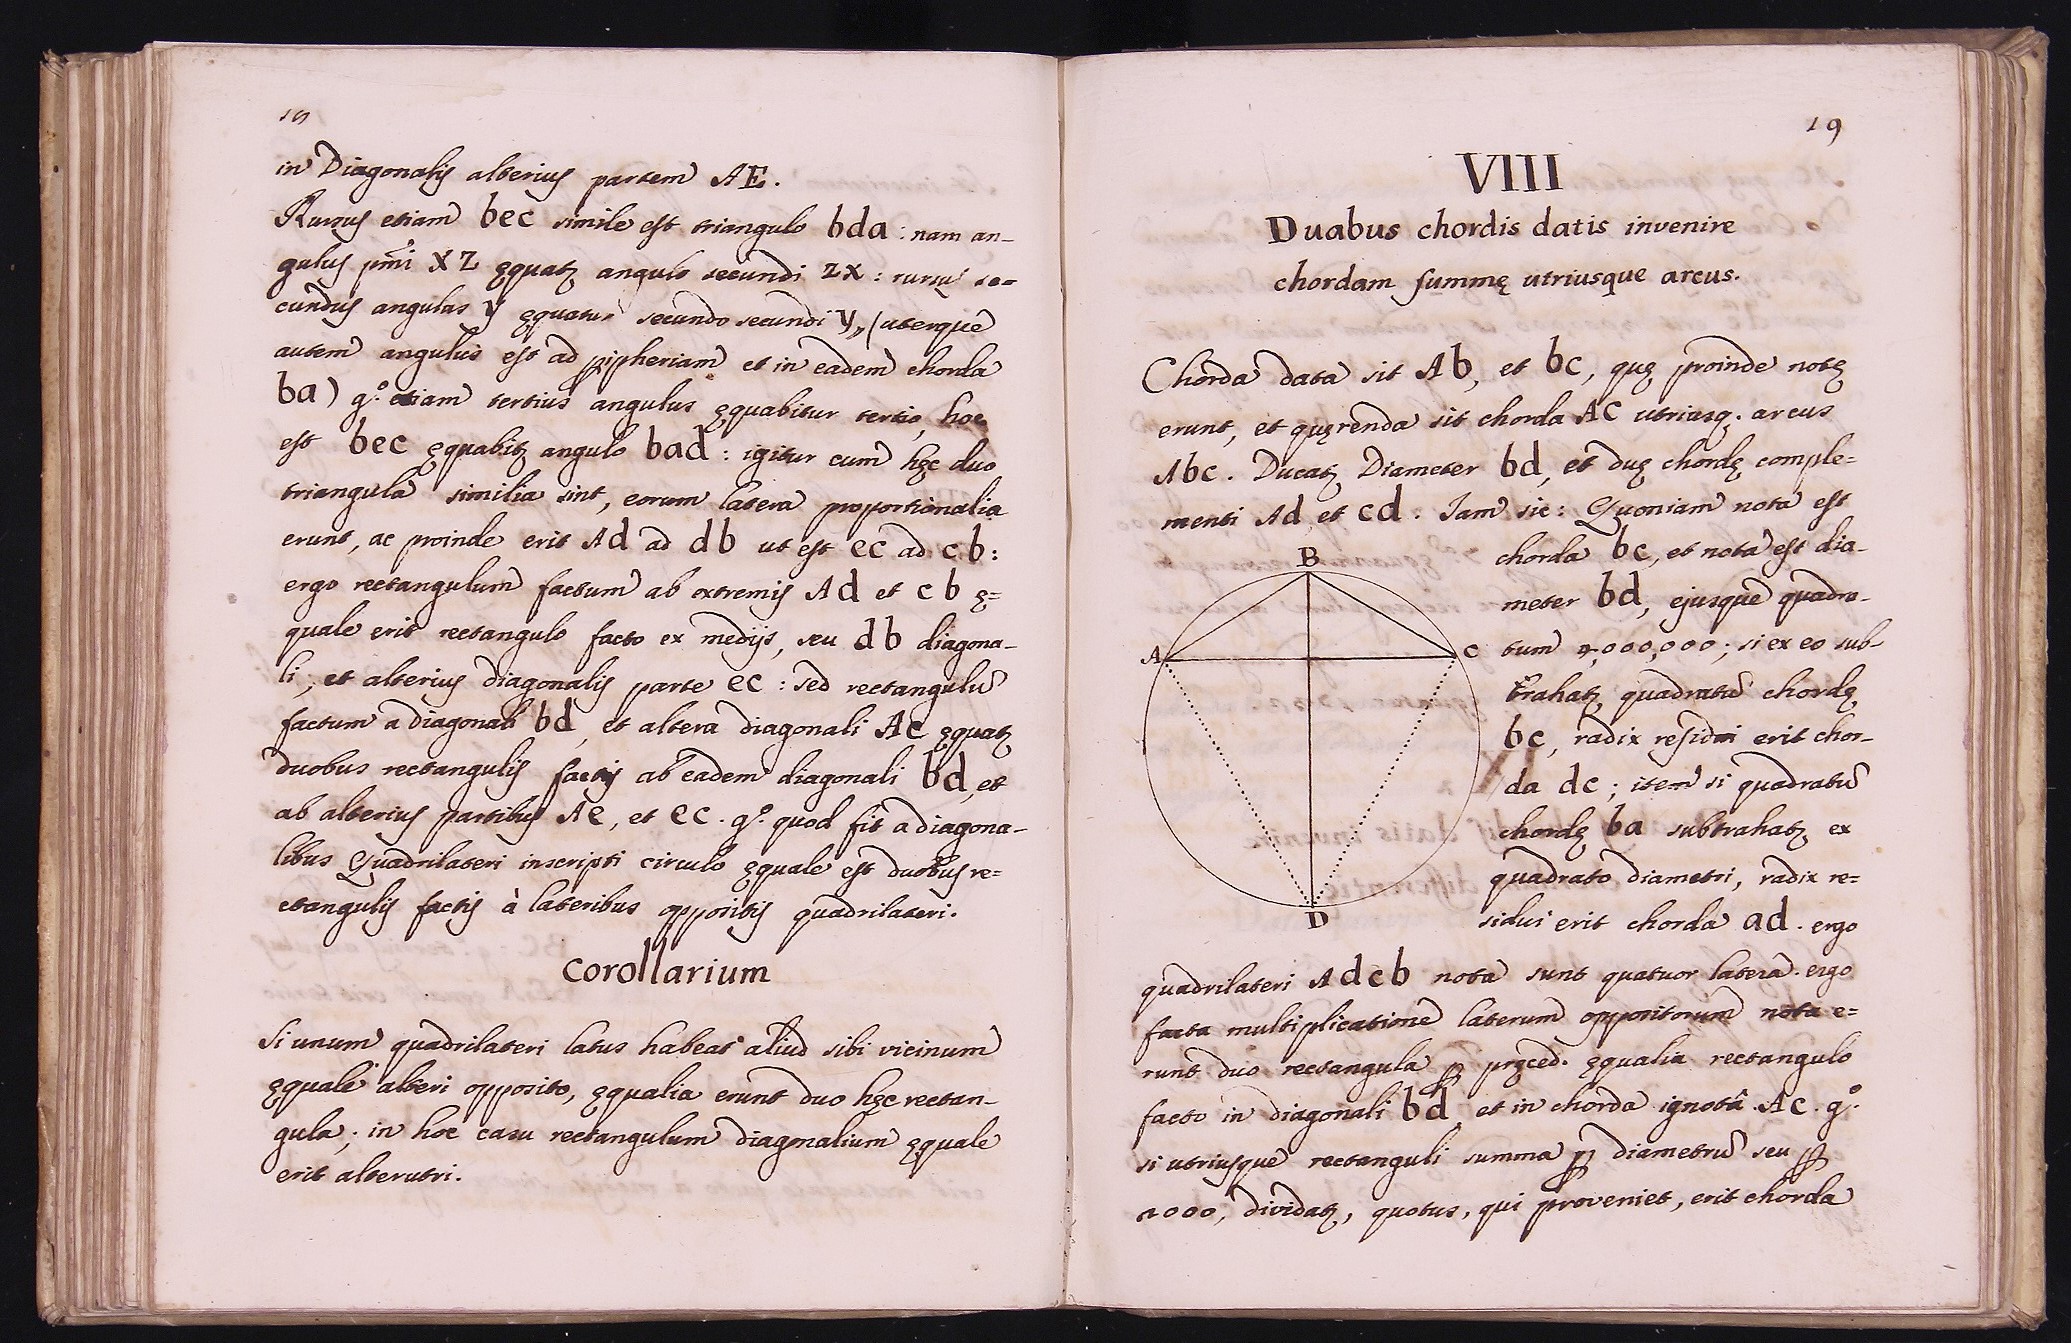 18
in Diagonalis alterius partem AE.
Rursus etiam bec simile est triangulo bda : nam an-
gulus pmi XZ ęquatꝫ angulo secundi ZX : rursu se=
cundus angulus y ęquatur secundo secundi y, (uterque
autem angulus est ad pipheriam et in eadem chorda
ba) gº. etiam tertius angulus ęquabitur tertio, hoc
est bec ęquabitꝫ angulo bad : igitur cum hęc duo
triangula similia sint, eorum latera proportionalia
erunt, ac proinde erit Ad ad db ut est ec ad cb :
ergo rectangulum factum ab extremis Ad et cb ę=
quale erit rectangulo facto ex medijs, seu db diagona-
li, et alterius diagonalis parte ec : sed rectangulū
factum a diagonali bd, et altera diagonali Ac ęquatꝫ
duobus rectangulis factis ab eadem diagonali bd, et
ab alterius partibus Ae, et ec. gº. quod fit a diagona-
libus Quadrilateri inscripti circulo ęquale est duobus re=
ctangulis factis à lateribus oppositis quadrilateri.
Corollarium
Si unum quadrilateri latus habeat aliud sibi vicinum
ęquale alteri opposito, ęqualia erunt duo hęc rectan-
gula; in hoc casu rectangulum diagonalium ęquale
erit alterutri.
19
VIII
Duabus chordis datis invenire
chordam summę utriusque arcus.
Chorda data sit Ab, et bc, quę proinde notę
erunt, et quęrenda sit chorda AC utriusq. arcus
Abc. Ducatꝫ Diameter bd, et duę chordę comple=
menti Ad et cd. Iam sic: Quoniam nota est
chorda bc, et nota est dia-
meter bd, ejusque quadra-
tum 4,000,000; si ex eo sub-
trahatꝫ quadratū chordę
bc, radix residui erit chor-
da dc; item si quadratū
chordę ba subtrahatꝫ ex
quadrato diametri, radix re=
sidui erit chorda ad. ergo
B
A
C
D
quadrilateri Adcb nota sunt quatuor latera. ergo
facta multiplicatione laterum oppositorum nota e=
runt duo rectangula ꝑ pręced. ęqualia rectangulo
facto in diagonali bd et in chorda ignotâ Ac. gº.
si utriusque rectanguli summa ꝑ diametrū seu ꝑ
2000, dividatꝫ, quotus, qui proveniet, erit chorda